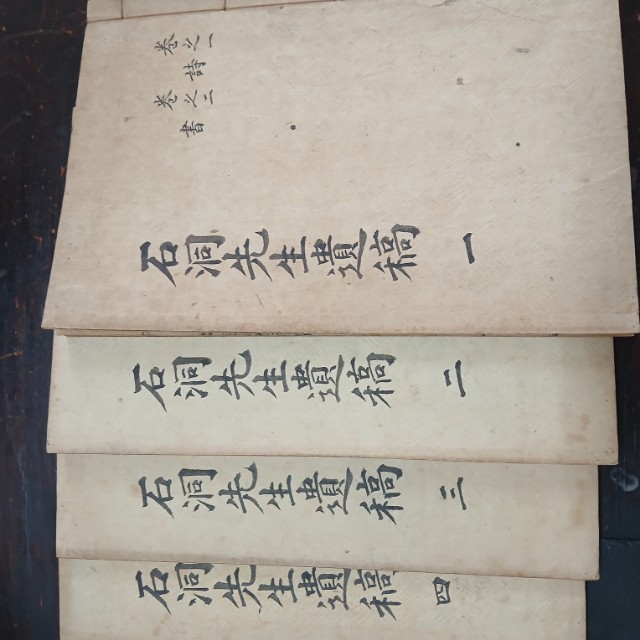 卷之一
詩
卷之二
書
石洞先生遺稿 一
石洞先生遺稿 二
石洞先生遺稿 三
石洞先生遺稿 四